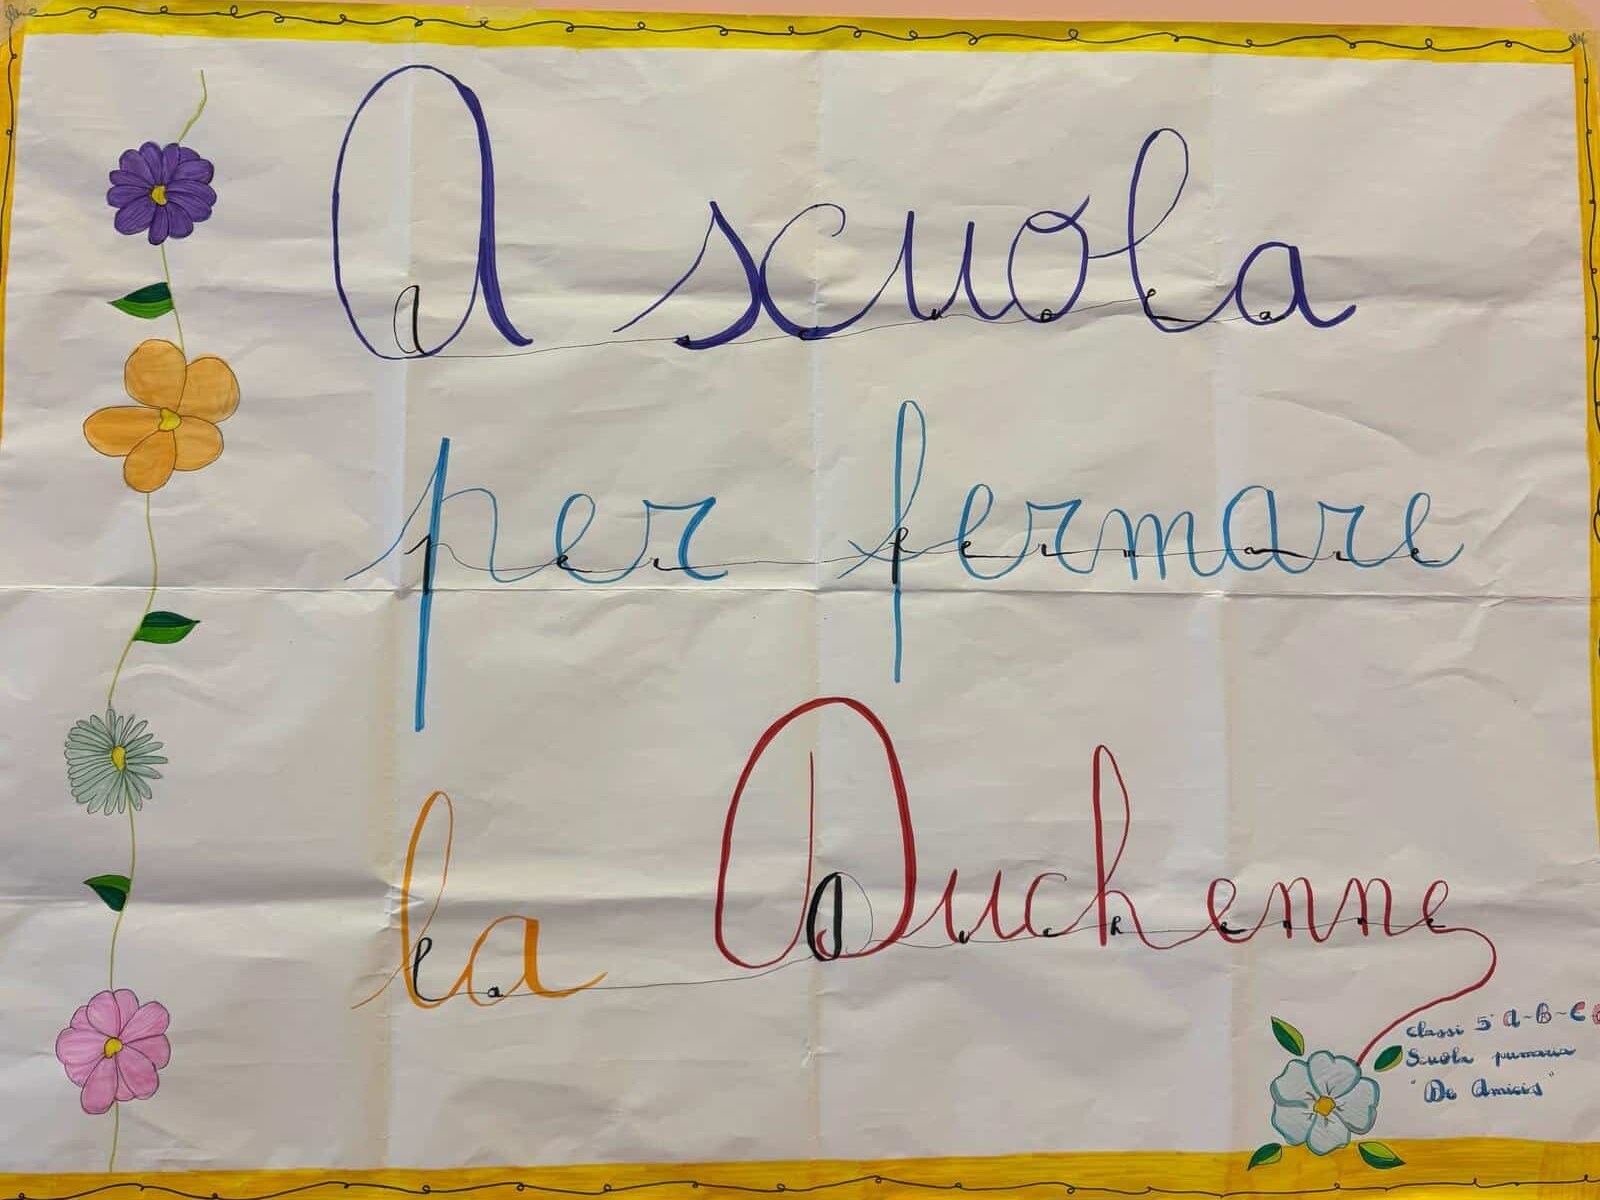 A scuola
per fermare
la Duchenne
Classi 5ª A-B-C
Scuola primaria
"De Amicis"